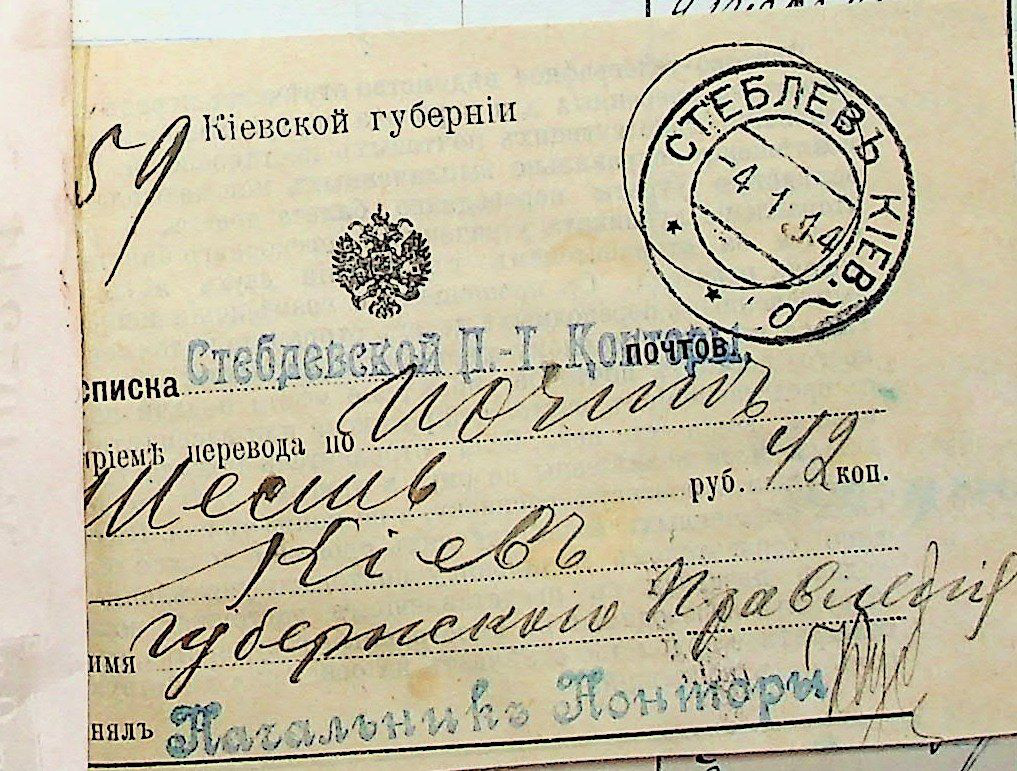 59 Кіевской губерніи
СТЕБЛЕВЪ КІЕВ.
-4.1.14
списка Стеблевской П.-Т. Конторы почтов.
пріемѣ перевода по почтѣ
Шесть руб. 42 коп.
Кіевъ
имя губернского Правленія
нялъ Начальникъ Конторы